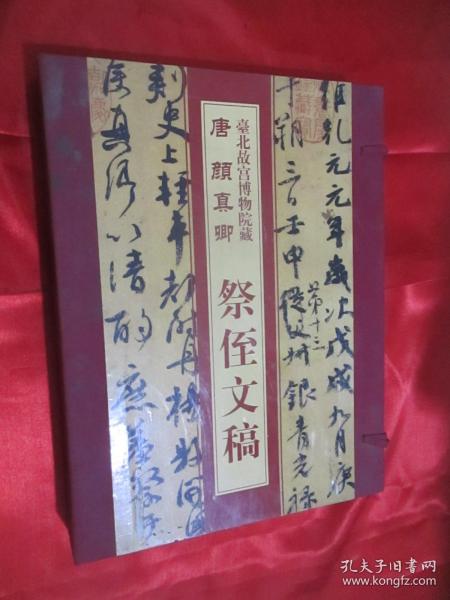 臺北故宮博物院藏
唐 顔真卿
祭侄文稿
維乾元元年歲次戊戌九月庚
午朔三日壬申從父
第十三
叔銀青光禄
刺史上輕車都尉丹楊縣開國
侯真卿以清酌庶羞祭
孔夫子旧书网
www.kongfz.com